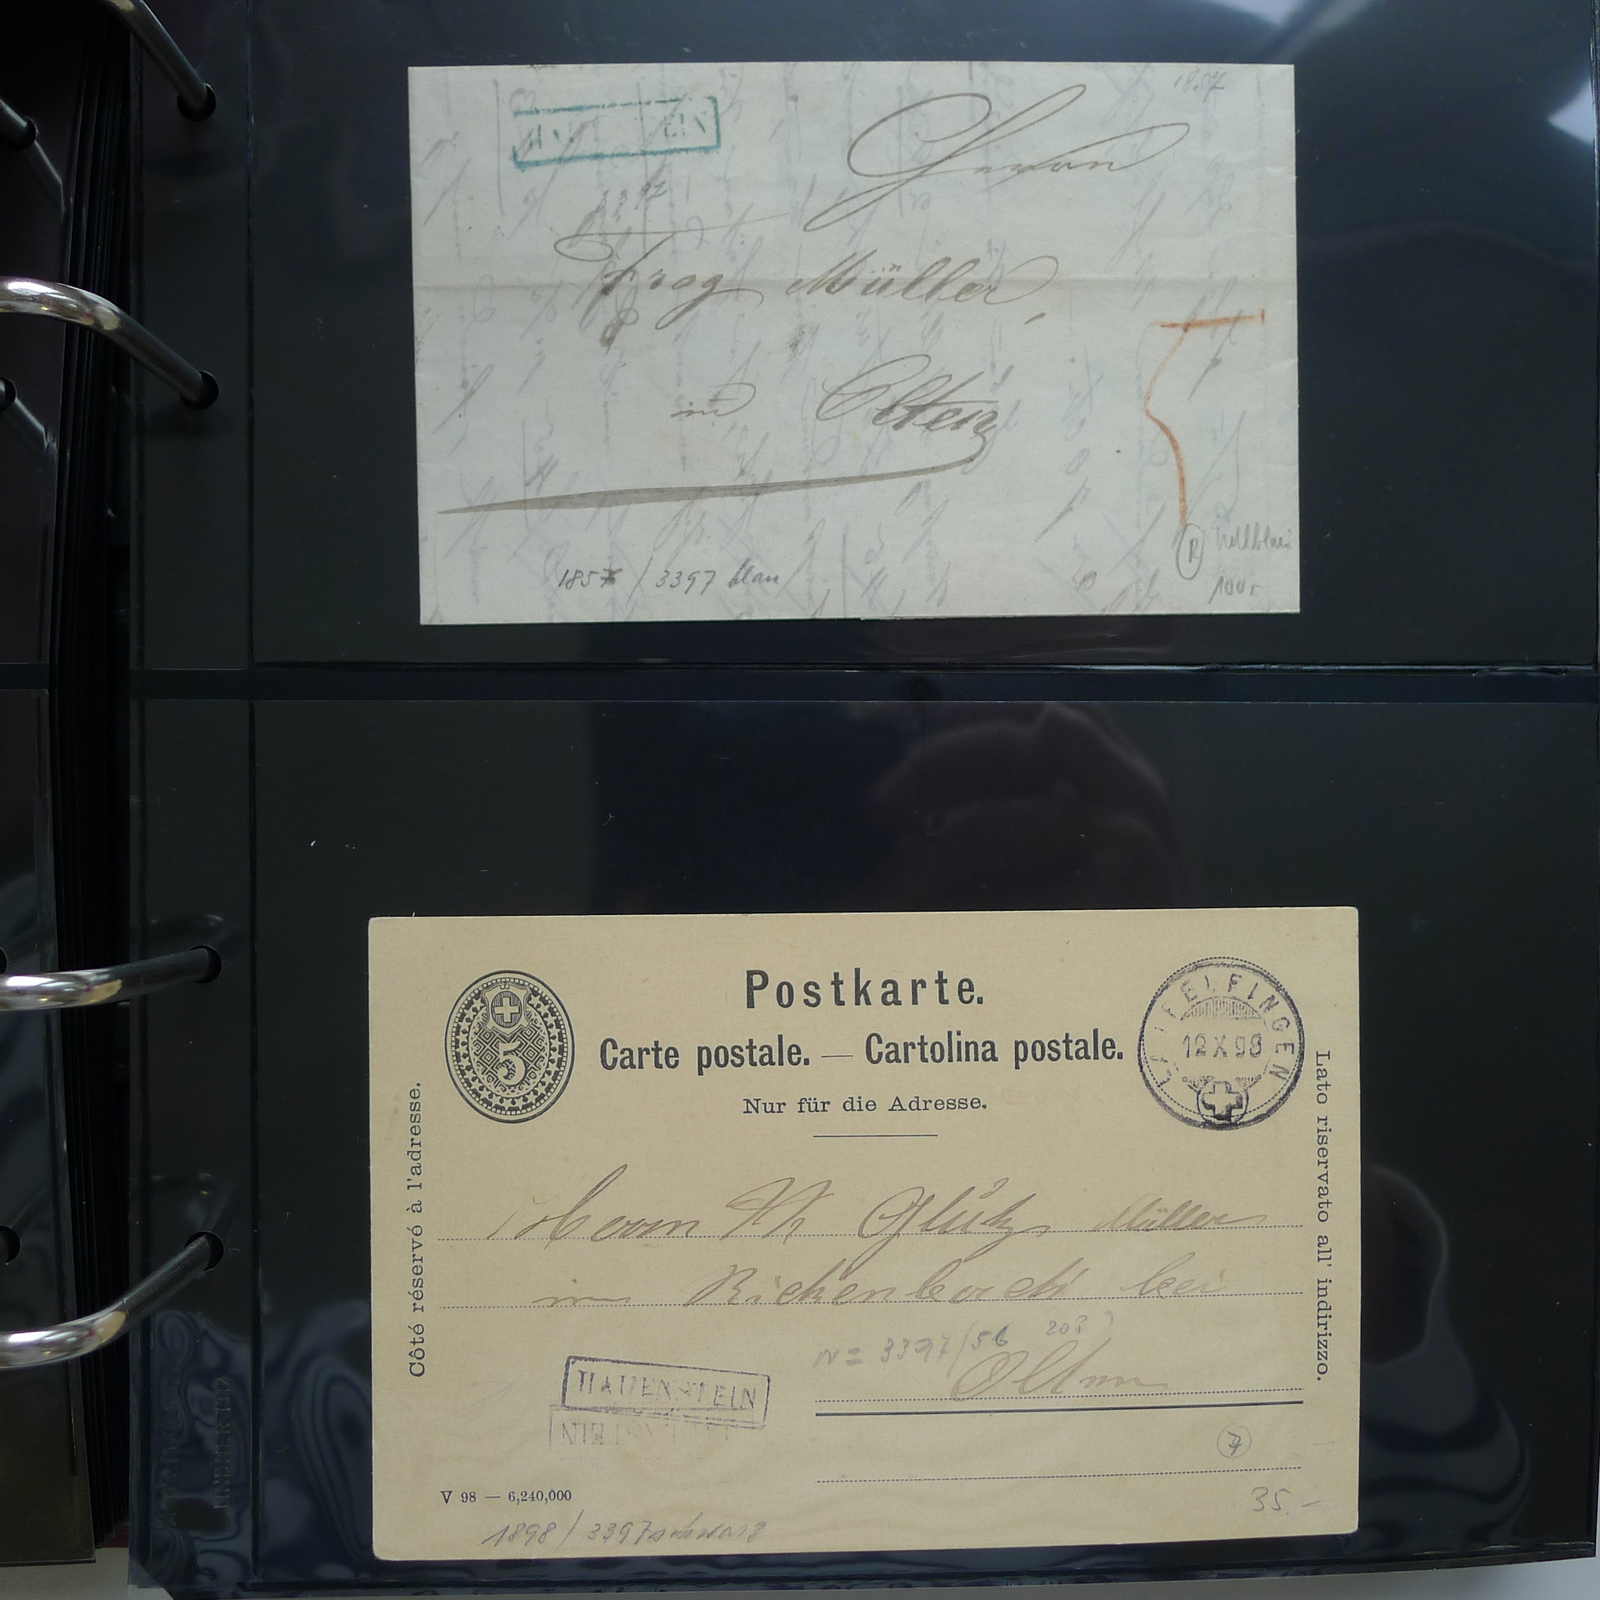 1857
Herrn
3397
Frog Müller
in Olten
1857 / 3397 blau
R
hellblau
100.-
Postkarte.
Carte postale. — Cartolina postale.
Nur für die Adresse.
5
LÄUFELFINGEN
12 X 98
Côté réservé à l'adresse.
Lato riservato all' indirizzo.
Herrn Glutz Müller
in Rickenbach bei
N= 3397/56 203
Olten
HAUENSTEIN
7
V 98 — 6,240,000
35.-
1898 / 3397 schwarz